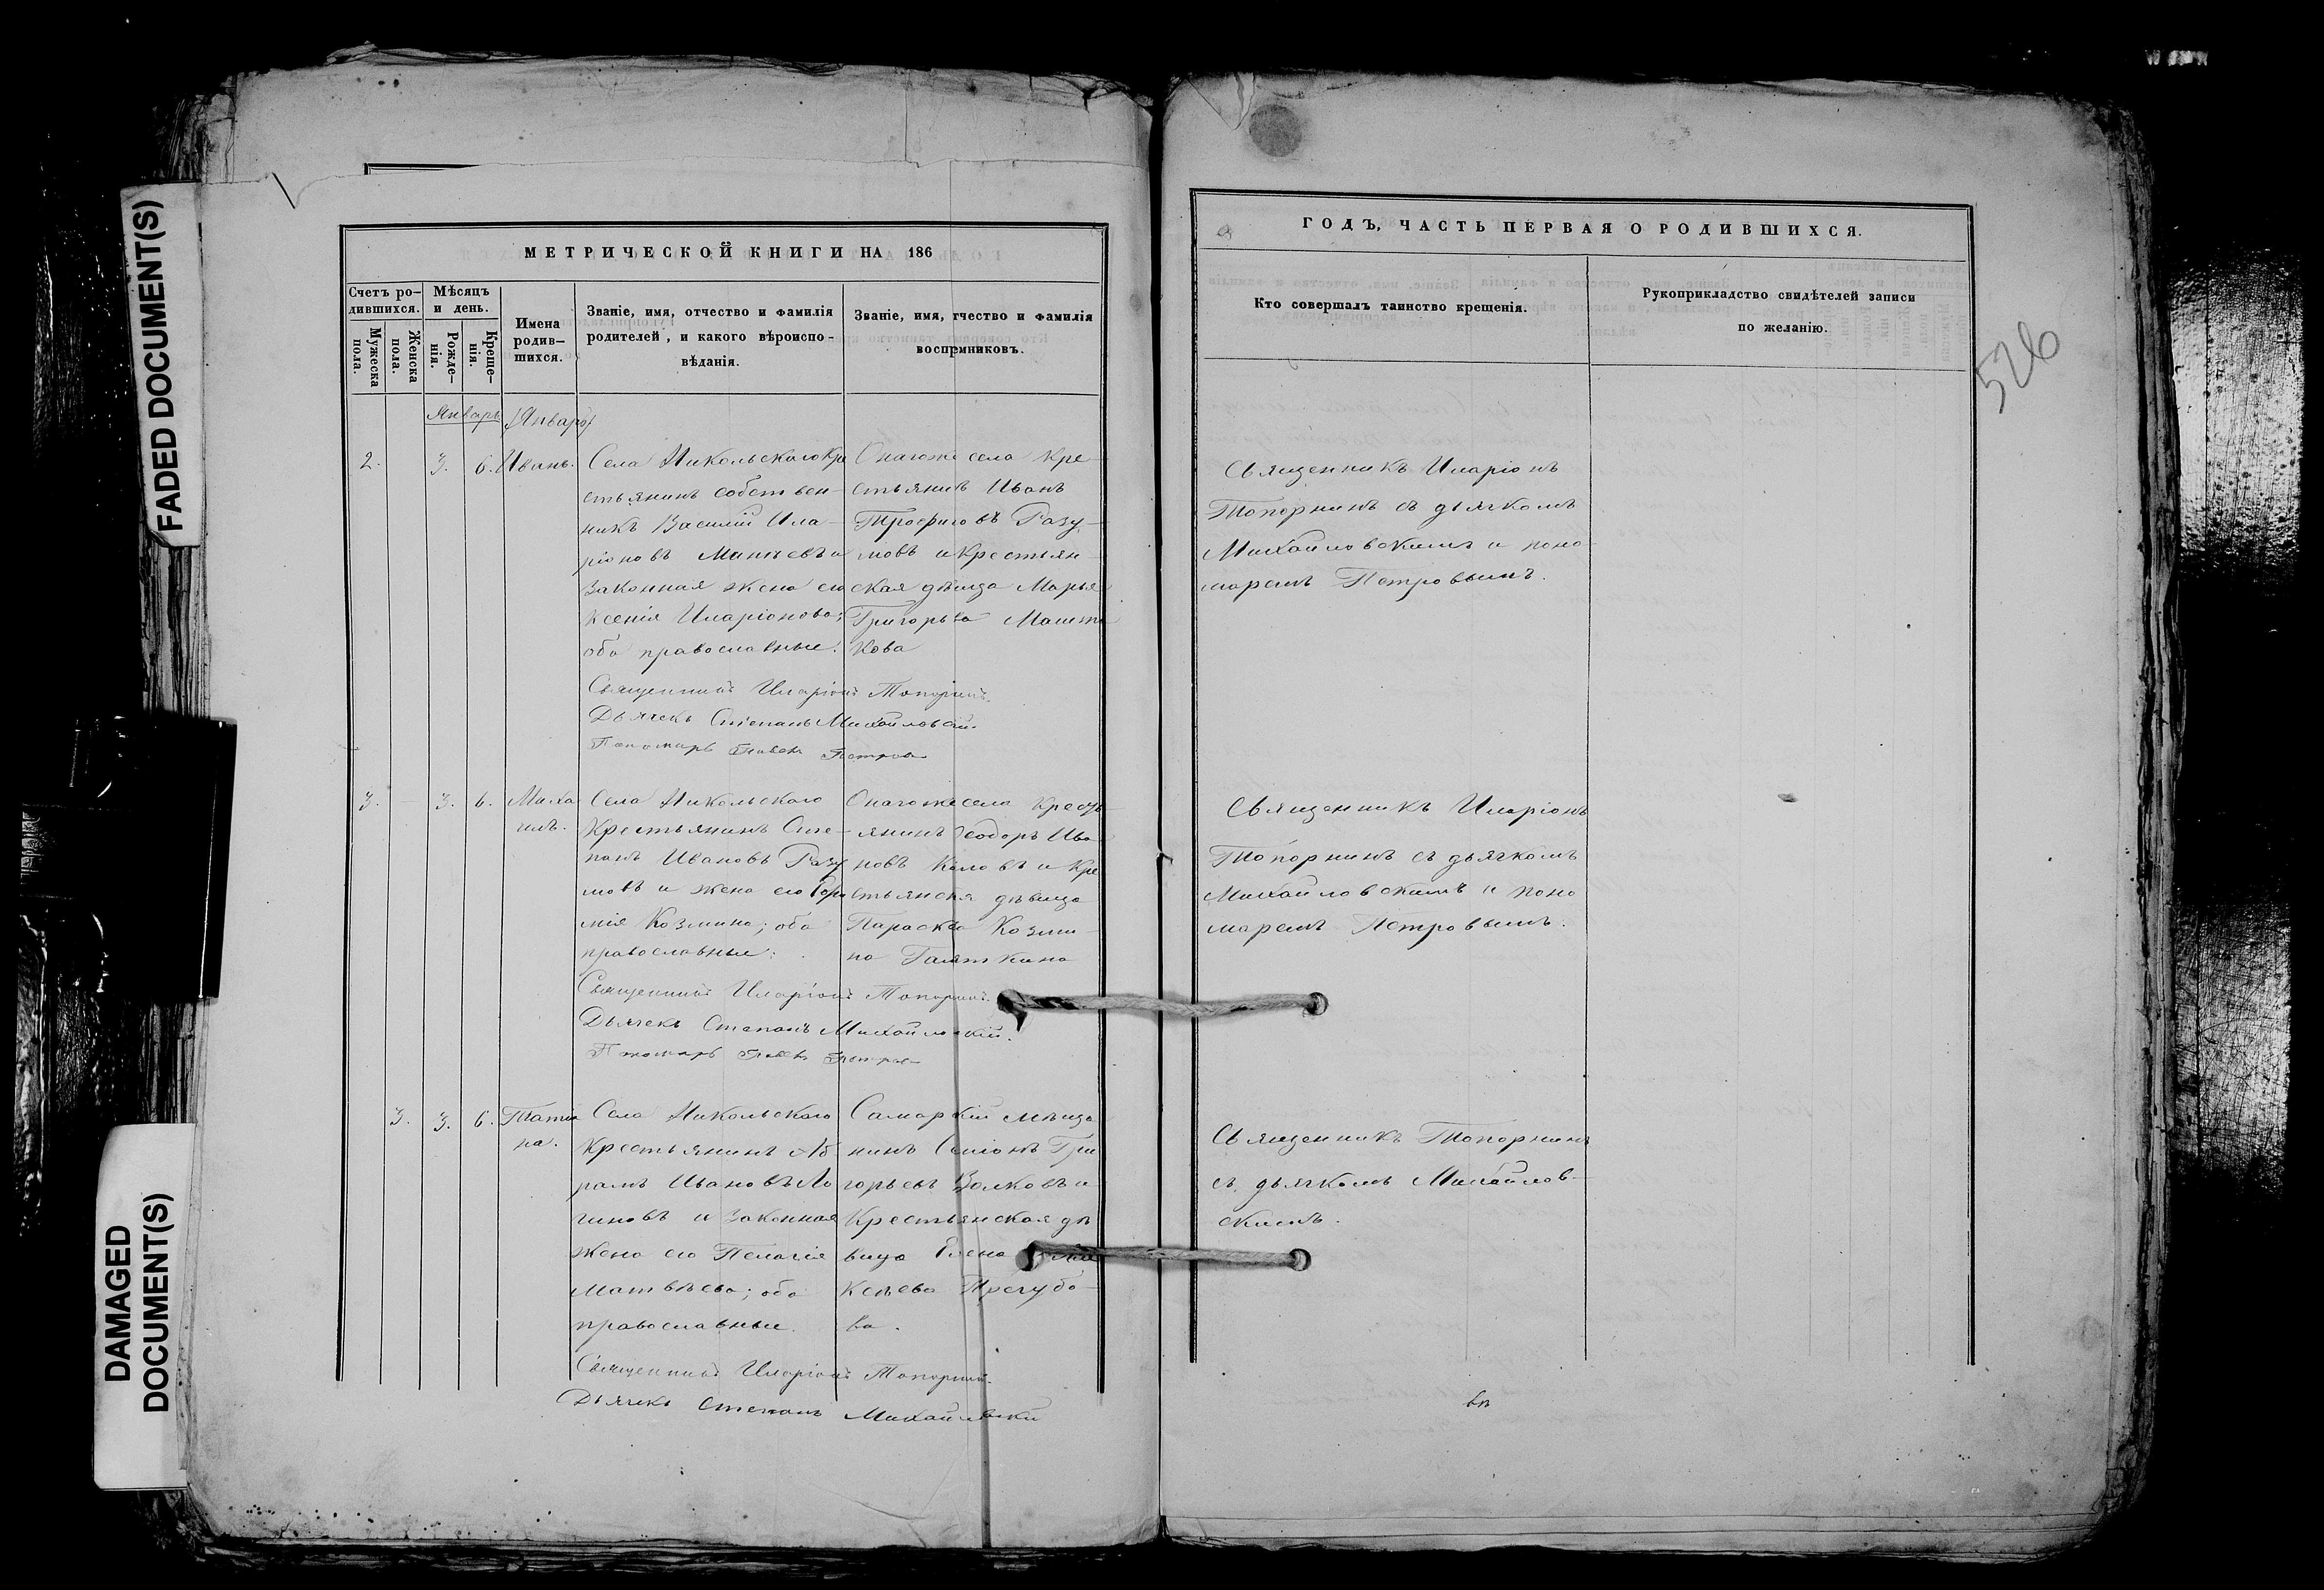 FADED DOCUMENT(S)
DAMAGED
DOCUMENT(S)
МЕТРИЧЕСКОЙ КНИГИ НА 186
Счетъ ро-
дившихся.
Мужеска
пола.
Женска
пола.
Мѣсяцъ
и день.
Рожде-
нія.
Креще-
нія.
Имена
родив-
шихся.
Званіе, имя, отчество и фамилія
родителей, и какого вѣроиспо-
вѣданія.
Званіе, имя, тчество и фамилія
воспрмниковъ.
Январь
Январь
2.
3.
6.
Иванъ.
Села Никольскаго Кре
стьянинъ собствен-
никъ Василій Ила-
ріоновъ Минѣевъ и
законная жена его
Ксенія Иларіонова;
оба православные.
Онагоже села Кре-
стьянинъ Иванъ
Трофимовъ Разу-
мовъ и крестьян-
ская дѣвица Марья
Григорьева
кова
Священникъ Иларіонъ Топорнинъ.
Дьячекъ Степанъ Михайловскій.
Пономарь Павелъ Петровъ
3.
3.
6.
Миха
илъ.
Села Никольскаго
Крестьянинъ Сте-
панъ Ивановъ Разу
мовъ и жена его
мія Козмина; оба
православные.
Онагоже села Кресть-
янинъ Ѳеодоръ Ива
новъ и Кре
стьянская дѣвица
Параскева Козми-
на
Священникъ Иларіонъ Топорнинъ.
Дьячекъ Степанъ Михайловскій.
Пономарь Павелъ Петровъ
3.
3.
6.
Татья
на.
Села Никольскаго
Крестьянинъ Аб
рамъ Ивановъ Ло
гиновъ и законная
жена его Пелагія
Матвѣева; оба
православные.
Самарскій мѣща
нинъ Симіонъ Гри
горьевъ Волковъ и
Крестьянская дѣ
вица Елена
ксѣева
ва.
Священникъ Иларіонъ Топорнинъ.
Дьячекъ Степанъ Михайловскій
ГОДЪ, ЧАСТЬ ПЕРВАЯ О РОДИВШИХСЯ.
Кто совершалъ таинство крещенія.
Рукоприкладство свидѣтелей записи
по желанію.
526
Священникъ Иларіонъ
Топорнинъ съ дьячкомъ
Михайловскимъ и поно-
маремъ Петровымъ.
Священникъ Иларіонъ
Топорнинъ съ дьячкомъ
Михайловскимъ и поно
маремъ Петровымъ.
Священникъ Топорнинъ
съ дьячкомъ Михайлов-
скимъ.